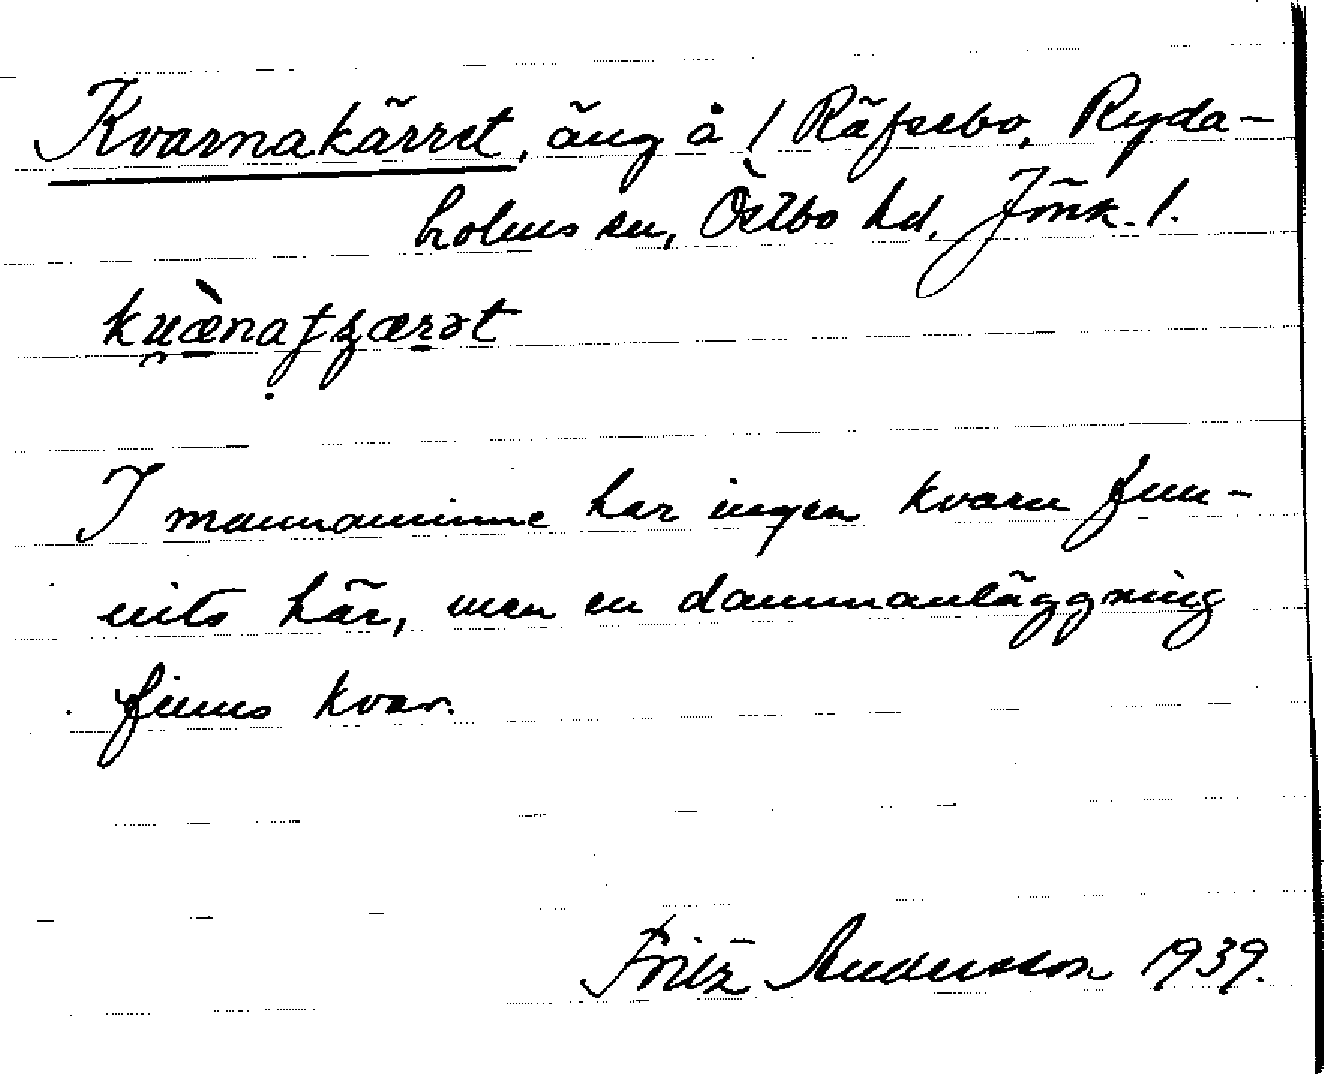 Kvarnakärret, äng å 1 Räfsebo, Ryda-
holms sn, Östbo hd, Jönk. l.
I mannaminne har ingen kvarn fun-
nits här, men en dammanläggning
finns kvar.
Fritz Andersson 1939.